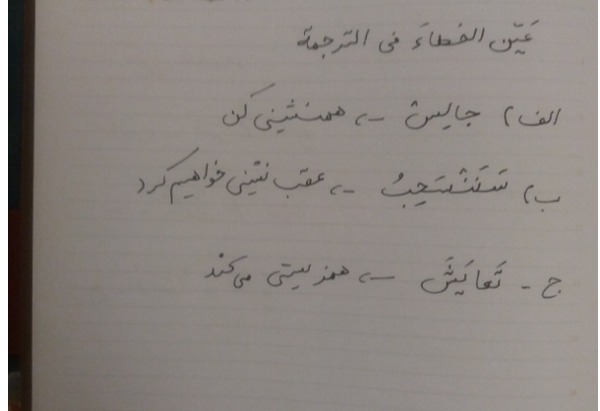 عَیّن الخطاءَ فی الترجمة
الف) جالِسْ -، همنشینی کن
ب) سَنَنْسَحِبُ -، عقب نشینی خواهیم کرد
ج - تَعایَشَ -، همزیستی می‌کند